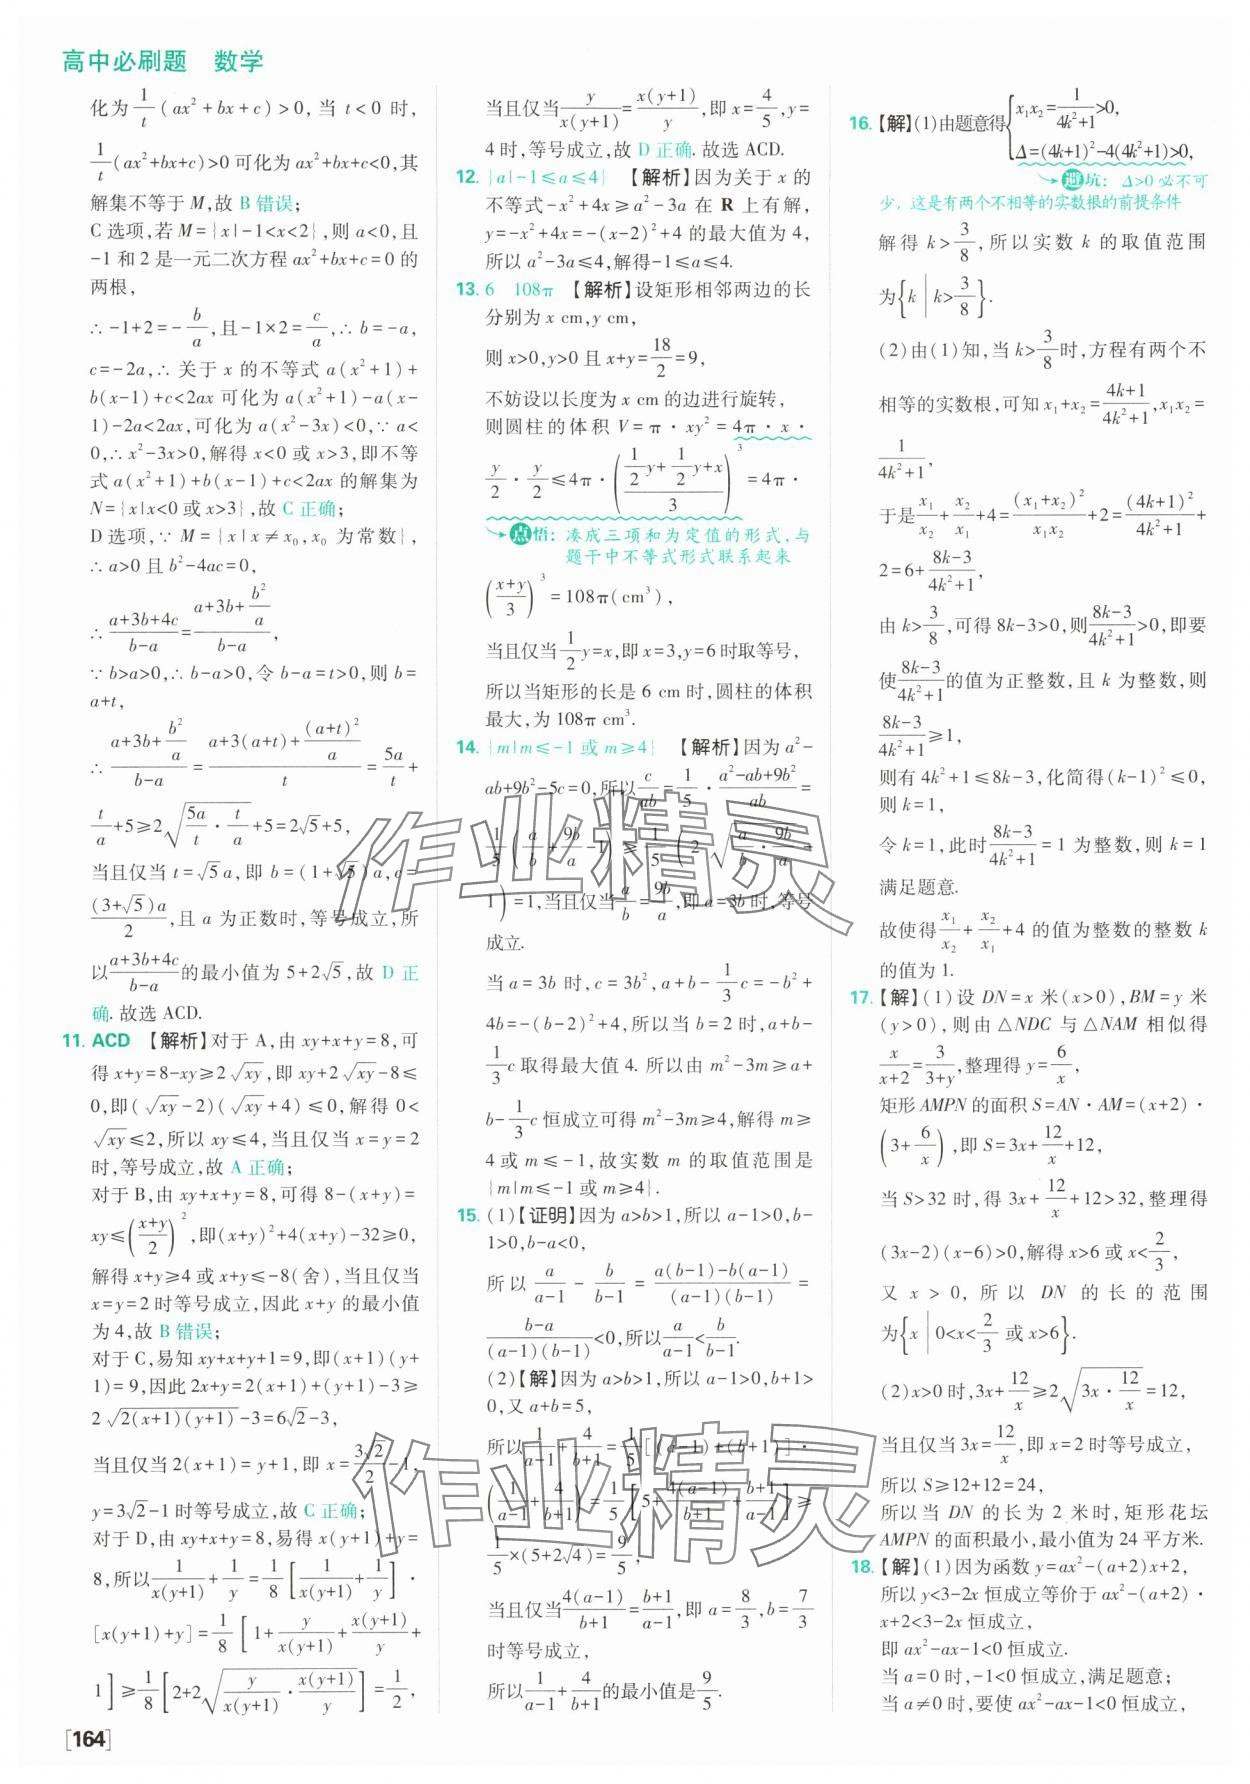 高中必刷题 数学
化为1/t(ax²+bx+c)>0,当 t<0 时,
1/t(ax²+bx+c)>0可化为ax²+bx+c<0,其
解集不等于M,故 B 错误;
C 选项,若 M={x|-1<x<2},则 a<0,且
-1和2是一元二次方程ax²+bx+c=0的
两根,
∴ -1+2=-b/a,且-1×2=c/a,∴ b=-a,
c=-2a,∴ 关于 x 的不等式 a(x²+1)+
b(x-1)+c<2ax 可化为 a(x²+1)-a(x-
1)-2a<2ax,可化为a(x²-3x)<0,∵ a<
0,∴ x²-3x>0,解得 x<0或 x>3,即不等
式 a(x²+1)+b(x-1)+c<2ax 的解集为
N={x|x<0或x>3},故 C 正确;
D 选项,∵ M={x|x≠x₀,x₀ 为常数},
∴ a>0 且 b²-4ac=0,
∴ (a+3b+4c)/(b-a)=(a+3b+b²/a)/(b-a),
∵ b>a>0,∴ b-a>0,令 b-a=t>0,则 b=
a+t,
∴ (a+3b+b²/a)/(b-a)=(a+3(a+t)+(a+t)²/a)/t=5a/t+
t/a+5≥2√(5a/t·t/a)+5=2√5+5,
当且仅当 t=√5a,即 b=(1+√5)a,c=
(3+√5)a/2,且 a 为正数时,等号成立,所
以(a+3b+4c)/(b-a)的最小值为 5+2√5,故 D 正
确. 故选 ACD.
11. ACD 【解析】对于 A,由 xy+x+y=8,可
得x+y=8-xy≥2√xy,即xy+2√xy-8≤
0,即(√xy-2)(√xy+4)≤0,解得 0<
√xy≤2,所以 xy≤4,当且仅当 x=y=2
时,等号成立,故 A 正确;
对于 B,由 xy+x+y=8,可得 8-(x+y)=
xy≤((x+y)/2)²,即(x+y)²+4(x+y)-32≥0,
解得 x+y≥4或 x+y≤-8(舍),当且仅当
x=y=2 时等号成立,因此 x+y 的最小值
为 4,故 B 错误;
对于 C,易知 xy+x+y+1=9,即(x+1)(y+
1)=9,因此 2x+y=2(x+1)+(y+1)-3≥
2√(2(x+1)(y+1))-3=6√2-3,
当且仅当 2(x+1)=y+1,即 x=3√2/2-1,
y=3√2-1时等号成立,故 C 正确;
对于D,由xy+x+y=8,易得x(y+1)+y=
8,所以1/(x(y+1))+1/y=1/8[1/(x(y+1))+1/y]·
[x(y+1)+y]=1/8[1+y/(x(y+1))+x(y+1)/y+
1]≥1/8[2+2√(y/(x(y+1))·x(y+1)/y)]=1/2,
当且仅当y/(x(y+1))=x(y+1)/y,即 x=4/5,y=
4 时,等号成立,故 D 正确. 故选 ACD.
12. {a|-1≤a≤4} 【解析】因为关于 x 的
不等式-x²+4x≥a²-3a 在 R 上有解,
y=-x²+4x=-(x-2)²+4 的最大值为 4,
所以 a²-3a≤4,解得-1≤a≤4.
13. 6 108π 【解析】设矩形相邻两边的长
分别为 x cm,y cm,
则 x>0,y>0 且 x+y=18/2=9,
不妨设以长度为 x cm 的边进行旋转,
则圆柱的体积 V=π·xy²=4π·x·
y/2·y/2≤4π·((1/2y+1/2y+x)/3)³=4π·
点悟:凑成三项和为定值的形式,与
题干中不等式形式联系起来
((x+y)/3)³=108π(cm³),
当且仅当1/2y=x,即 x=3,y=6 时取等号,
所以当矩形的长是 6 cm 时,圆柱的体积
最大,为 108π cm³.
14. {m|m≤-1 或 m≥4} 【解析】因为 a²-
ab+9b²-5c=0,所以c/ab=1/5·(a²-ab+9b²)/ab=
1/5(a/b+9b/a-1)≥1/5(2√(a/b·9b/a)-
1)=1,当且仅当a/b=9b/a,即 a=3b 时,等号
成立.
当 a=3b 时,c=3b²,a+b-1/3c=-b²+
4b=-(b-2)²+4,所以当 b=2 时,a+b-
1/3c取得最大值 4. 所以由 m²-3m≥a+
b-1/3c 恒成立可得 m²-3m≥4,解得 m≥
4 或 m≤-1,故实数 m 的取值范围是
{m|m≤-1或m≥4}.
15. (1)【证明】因为 a>b>1,所以 a-1>0,b-
1>0,b-a<0,
所以a/(a-1)-b/(b-1)=(a(b-1)-b(a-1))/((a-1)(b-1))=
(b-a)/((a-1)(b-1))<0,所以a/(a-1)<b/(b-1).
(2)【解】因为 a>b>1,所以 a-1>0,b+1>
0,又 a+b=5,
所以1/(a-1)+4/(b+1)=1/5[(a-1)+(b+1)]·
(1/(a-1)+4/(b+1))=1/5[5+4(a-1)/(b+1)+(b+1)/(a-1)]≥
1/5×(5+2√4)=9/5,
当且仅当4(a-1)/(b+1)=(b+1)/(a-1),即 a=8/3,b=7/3
时等号成立,
所以1/(a-1)+4/(b+1)的最小值是9/5.
16.【解】(1)由题意得{x₁x₂=1/(4k²+1)>0,
Δ=(4k+1)²-4(4k²+1)>0,
避坑:Δ>0 必不可
少,这是有两个不相等的实数根的前提条件
解得 k>3/8,所以实数 k 的取值范围
为{k|k>3/8}.
(2)由(1)知,当 k>3/8时,方程有两个不
相等的实数根,可知 x₁+x₂=(4k+1)/(4k²+1),x₁x₂=
1/(4k²+1),
于是x₁/x₂+x₂/x₁+4=(x₁+x₂)²/x₁x₂+2=(4k+1)²/(4k²+1)+
2=6+(8k-3)/(4k²+1),
由 k>3/8,可得 8k-3>0,则(8k-3)/(4k²+1)>0,即要
使(8k-3)/(4k²+1)的值为正整数,且 k 为整数,则
(8k-3)/(4k²+1)≥1,
则有 4k²+1≤8k-3,化简得(k-1)²≤0,
则 k=1,
令 k=1,此时(8k-3)/(4k²+1)=1 为整数,则 k=1
满足题意.
故使得x₁/x₂+x₂/x₁+4 的值为整数的整数 k
的值为 1.
17.【解】(1)设 DN=x 米(x>0),BM=y 米
(y>0),则由△NDC 与△NAM 相似得
x/(x+2)=3/(3+y),整理得 y=6/x,
矩形 AMPN 的面积 S=AN·AM=(x+2)·
(3+6/x),即 S=3x+12/x+12,
当 S>32 时,得 3x+12/x+12>32,整理得
(3x-2)(x-6)>0,解得 x>6 或 x<2/3,
又 x>0,所以 DN 的长的范围
为{x|0<x<2/3 或 x>6}.
(2)x>0 时,3x+12/x≥2√(3x·12/x)=12,
当且仅当 3x=12/x,即 x=2 时等号成立,
所以 S≥12+12=24,
所以当 DN 的长为 2 米时,矩形花坛
AMPN 的面积最小,最小值为 24 平方米.
18.【解】(1)因为函数 y=ax²-(a+2)x+2,
所以 y<3-2x 恒成立等价于 ax²-(a+2)·
x+2<3-2x 恒成立,
即 ax²-ax-1<0 恒成立.
当 a=0 时,-1<0 恒成立,满足题意;
当 a≠0 时,要使 ax²-ax-1<0 恒成立,
[164]
作业精灵
作业精灵